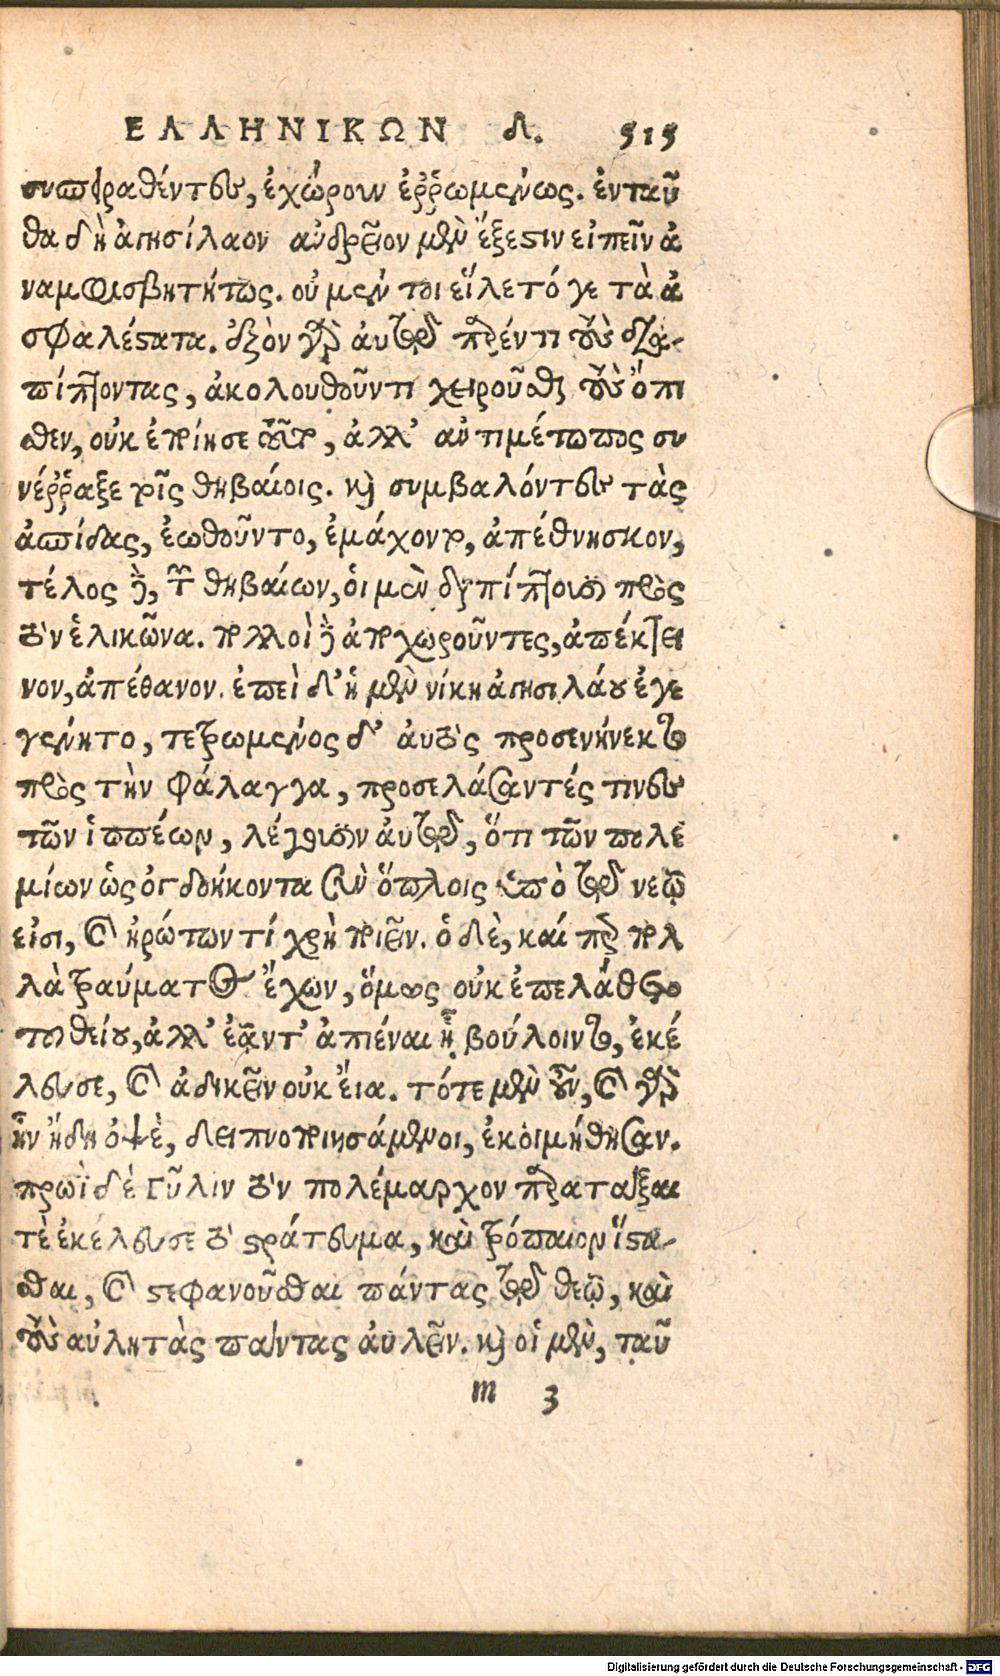 ΕΛΛΗΝΙΚΩΝ δ. 515
συσπειραθέντες, ἐχώρουν ἐῤῥωμένως. ἐνταῦ
θα δὴ ἀγησίλαον ἀνδρεῖον μὲν ἔξεστιν εἰπεῖν ἀ
ναμφισβητήτως. οὐ μέν τοι εἵλετό γε τὰ ἀ
σφαλέστατα. ἐξὸν γὰρ αὐτῷ παρέντι τοὺς δια-
πίπτοντας, ἀκολουθοῦντι χειροῦσθαι τοὺς ὄπι
σθεν, οὐκ ἐποίησε τοῦτο, ἀλλ' ἀντιμέτωπος συ
νέῤῥαξε τοῖς θηβαίοις. καὶ συμβαλόντες τὰς
ἀσπίδας, ἐωθοῦντο, ἐμάχοντο, ἀπέθνησκον,
τέλος δὲ, τῶν θηβαίων, οἱ μὲν διαπίπτουσι πρὸς
τὸν ἑλικῶνα. πολλοὶ δὲ ἀποχωροῦντες, ἀπέκτει
νον, ἀπέθανον. ἐπεὶ δ' ἡ μὲν νίκη ἀγησιλάου ἐγε
γένητο, τετρωμένος δ' αὐτὸς προσενήνεκτο
πρὸς τὴν φάλαγγα, προσελάσαντές τινες
τῶν ἱππέων, λέγουσιν αὐτῷ, ὅτι τῶν πολε
μίων ὡς ὀγδοήκοντα σὺν ὅπλοις ὑπὸ τῷ νεῷ
εἰσι, καὶ ἠρώτων τί χρὴ ποιεῖν. ὁ δὲ, καί περ πολ
λὰ τραύματα ἔχων, ὅμως οὐκ ἐπελάθετο
τοῦ θείου, ἀλλ' ἐᾶν τ' ἀπιέναι ᾗ βούλοιντο, ἐκέ
λευσε, καὶ ἀδικεῖν οὐκ εἴα. τότε μὲν οὖν, καὶ γὰρ
ἦν ἤδη ὀψὲ, δειπνοποιησάμενοι, ἐκοιμήθησαν.
πρωῒ δὲ Γῦλιν τὸν πολέμαρχον παρατάξαι
τὲ ἐκέλευσε τὸ στράτευμα, καὶ τρόπαιον ἵστα-
σθαι, καὶ στεφανοῦσθαι πάντας τῷ θεῷ, καὶ
τοὺς αὐλητὰς πάντας αὐλεῖν. καὶ οἱ μὲν, ταῦ
m 3
Digitalisierung gefördert durch die Deutsche Forschungsgemeinschaft - DFG